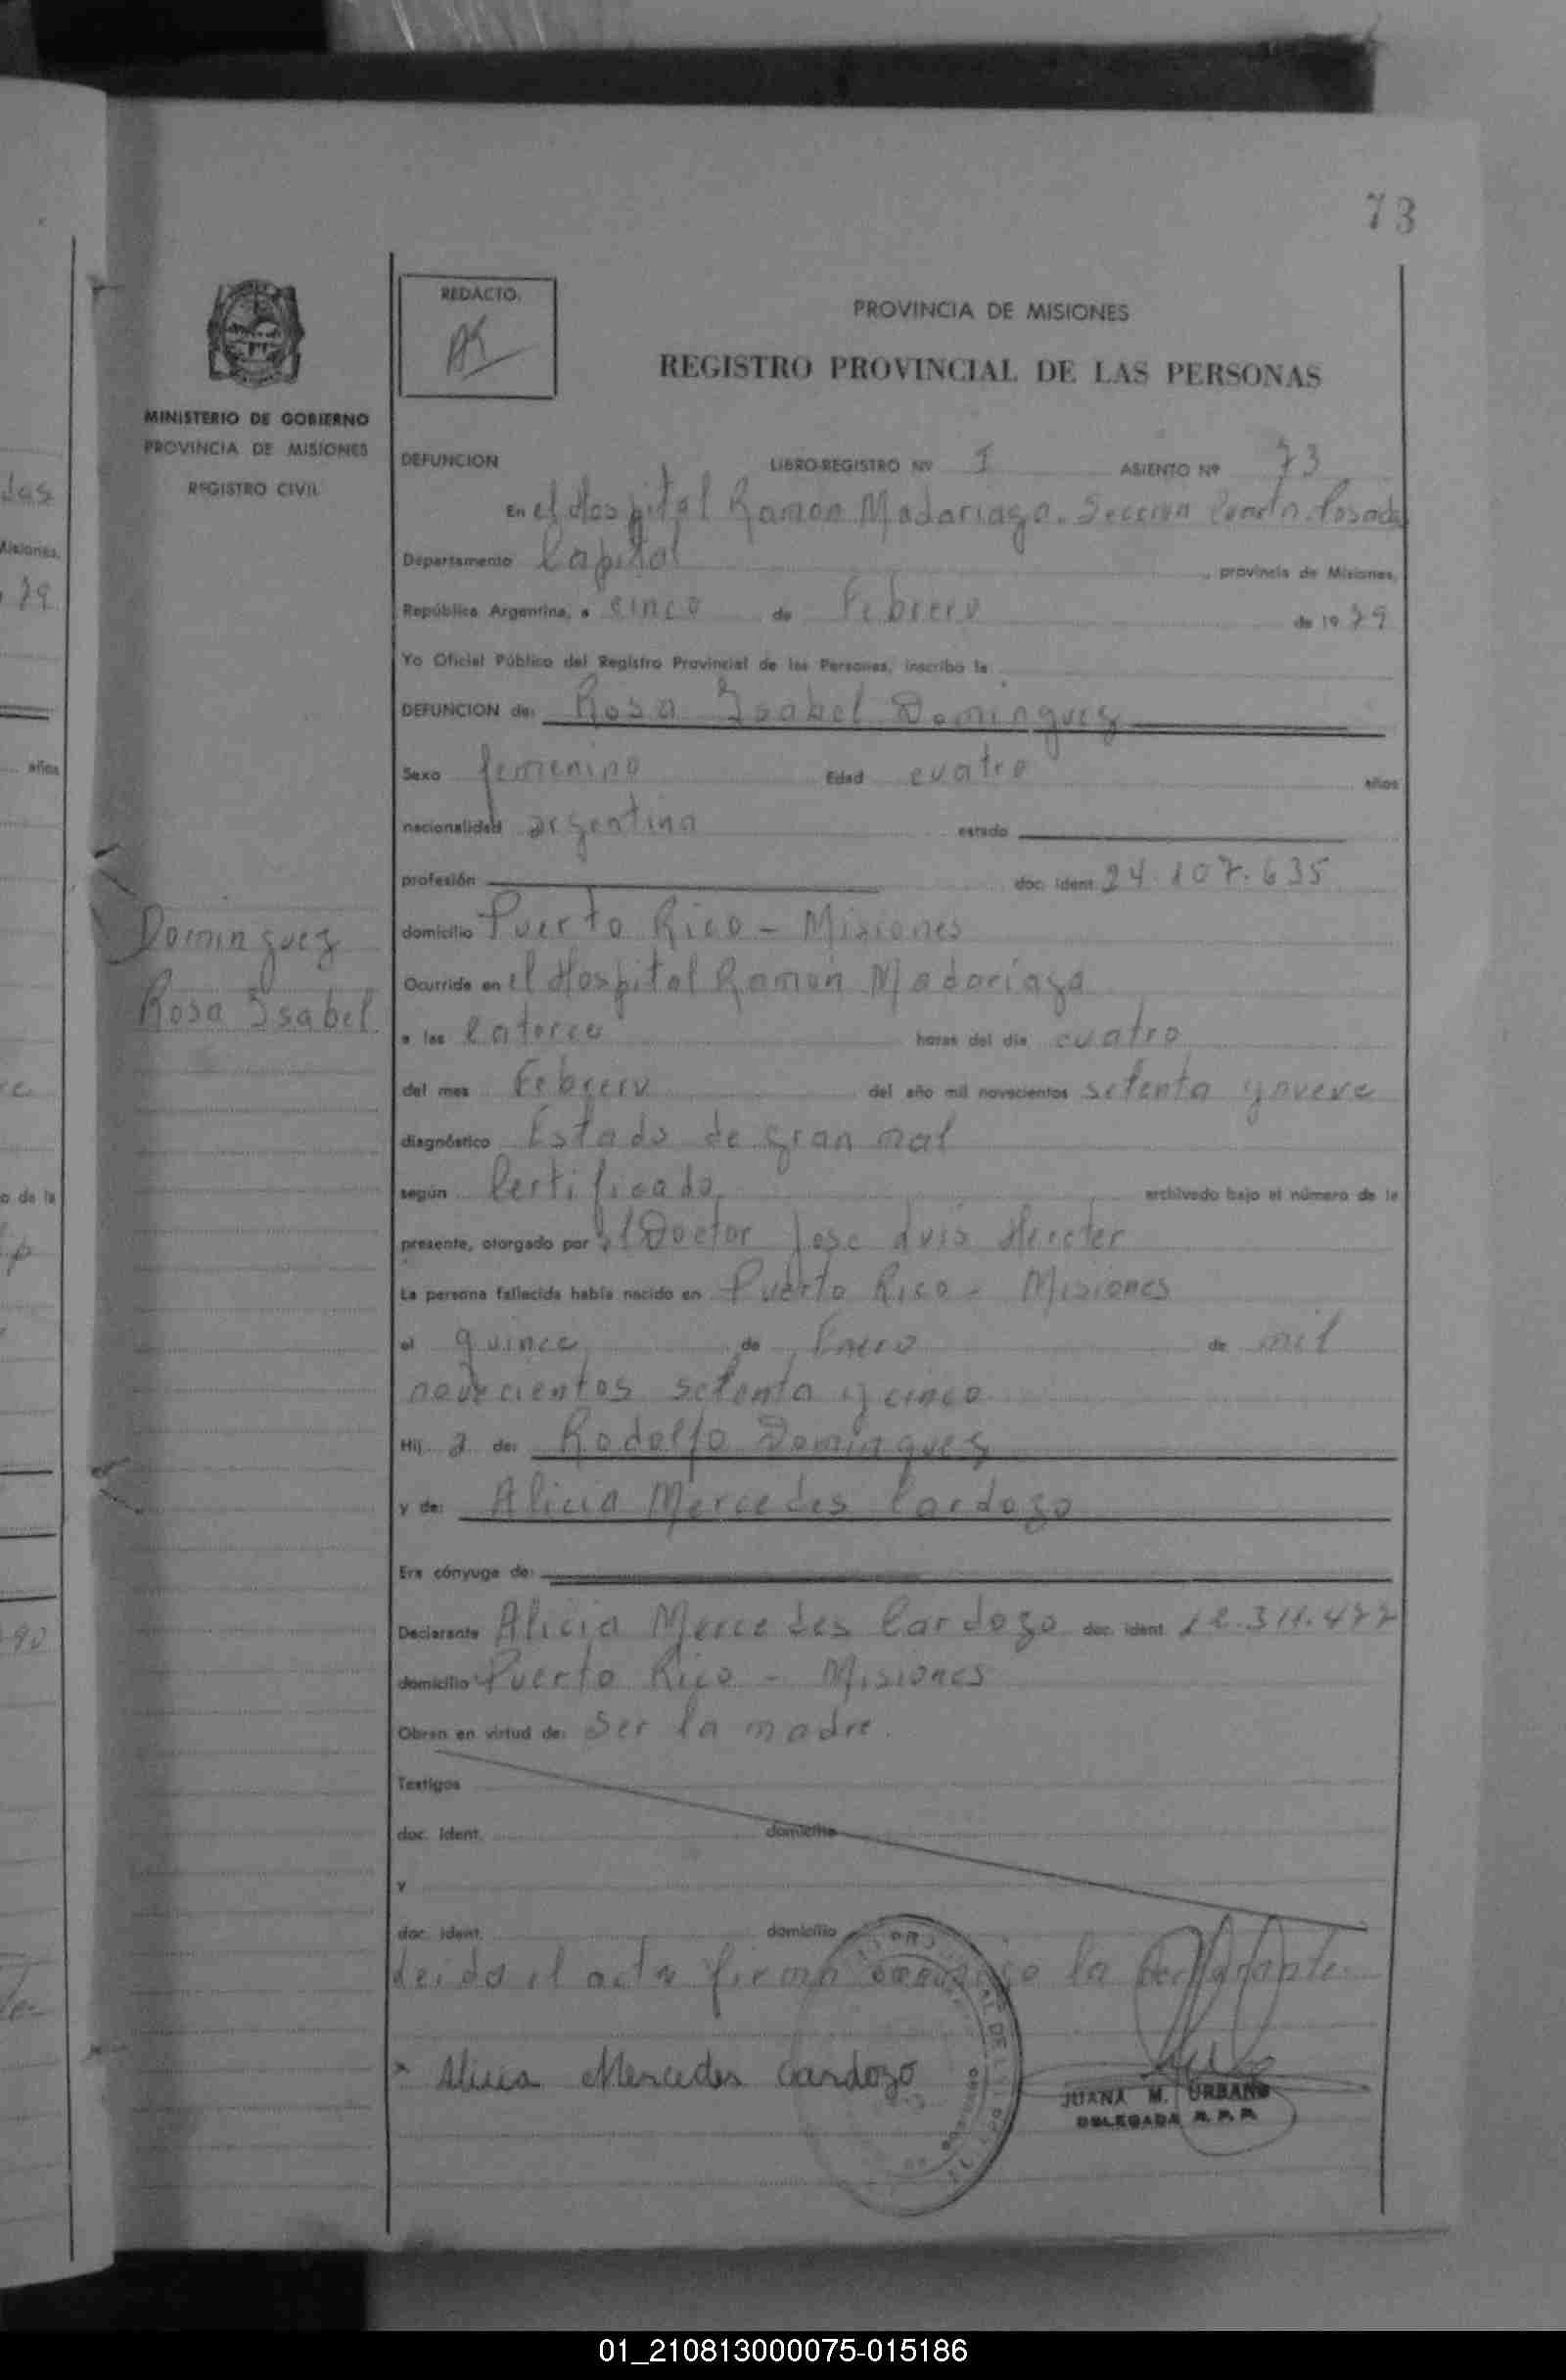 73
REDACTO.
PROVINCIA DE MISIONES
REGISTRO PROVINCIAL DE LAS PERSONAS
MINISTERIO DE GOBIERNO
PROVINCIA DE MISIONES
REGISTRO CIVIL
DEFUNCION LIBRO-REGISTRO Nº I ASIENTO Nº 73
En el Hospital Ramon Madariaga. Seccion Posadas
Departamento Capital, provincia de Misiones,
República Argentina, a cinco de Febrero de 1979
Yo Oficial Público del Registro Provincial de las Personas, inscribo la
DEFUNCION de: Rosa Isabel Dominguez
Sexo femenino Edad cuatro años
nacionalidad argentina estado
profesión doc. ident. 24.107.635
Dominguez
Rosa Isabel
domicilio Puerto Rico - Misiones
Ocurrida en el Hospital Ramon Madariaga
a las Catorce horas del día cuatro
del mes Febrero del año mil novecientos setenta y nueve
diagnóstico Estado de gran mal
según Certificado archivado bajo el número de la
presente, otorgado por el Doctor Jose Luis
La persona fallecida había nacido en Puerto Rico - Misiones
el quince de Enero de mil
novecientos setenta y cinco
Hij a de: Rodolfo Dominguez
y de: Alicia Mercedes Cardozo
Era cónyuge de:
Declarante Alicia Mercedes Cardozo doc. ident. 12.311.477
domicilio Puerto Rico - Misiones
Obran en virtud de: Ser la madre.
Testigos
doc. ident. domicilio
y
doc. ident. domicilio
Leida el acta firma conmigo la declarante.
x Alicia Mercedes Cardozo
JUANA M. URBANO
DELEGADA R. P. P.
01_210813000075-015186